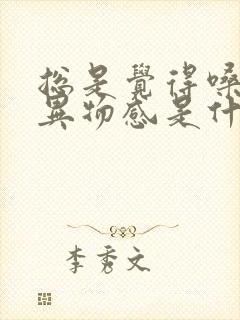 總是覺得嗓
異物感是什
李秀文